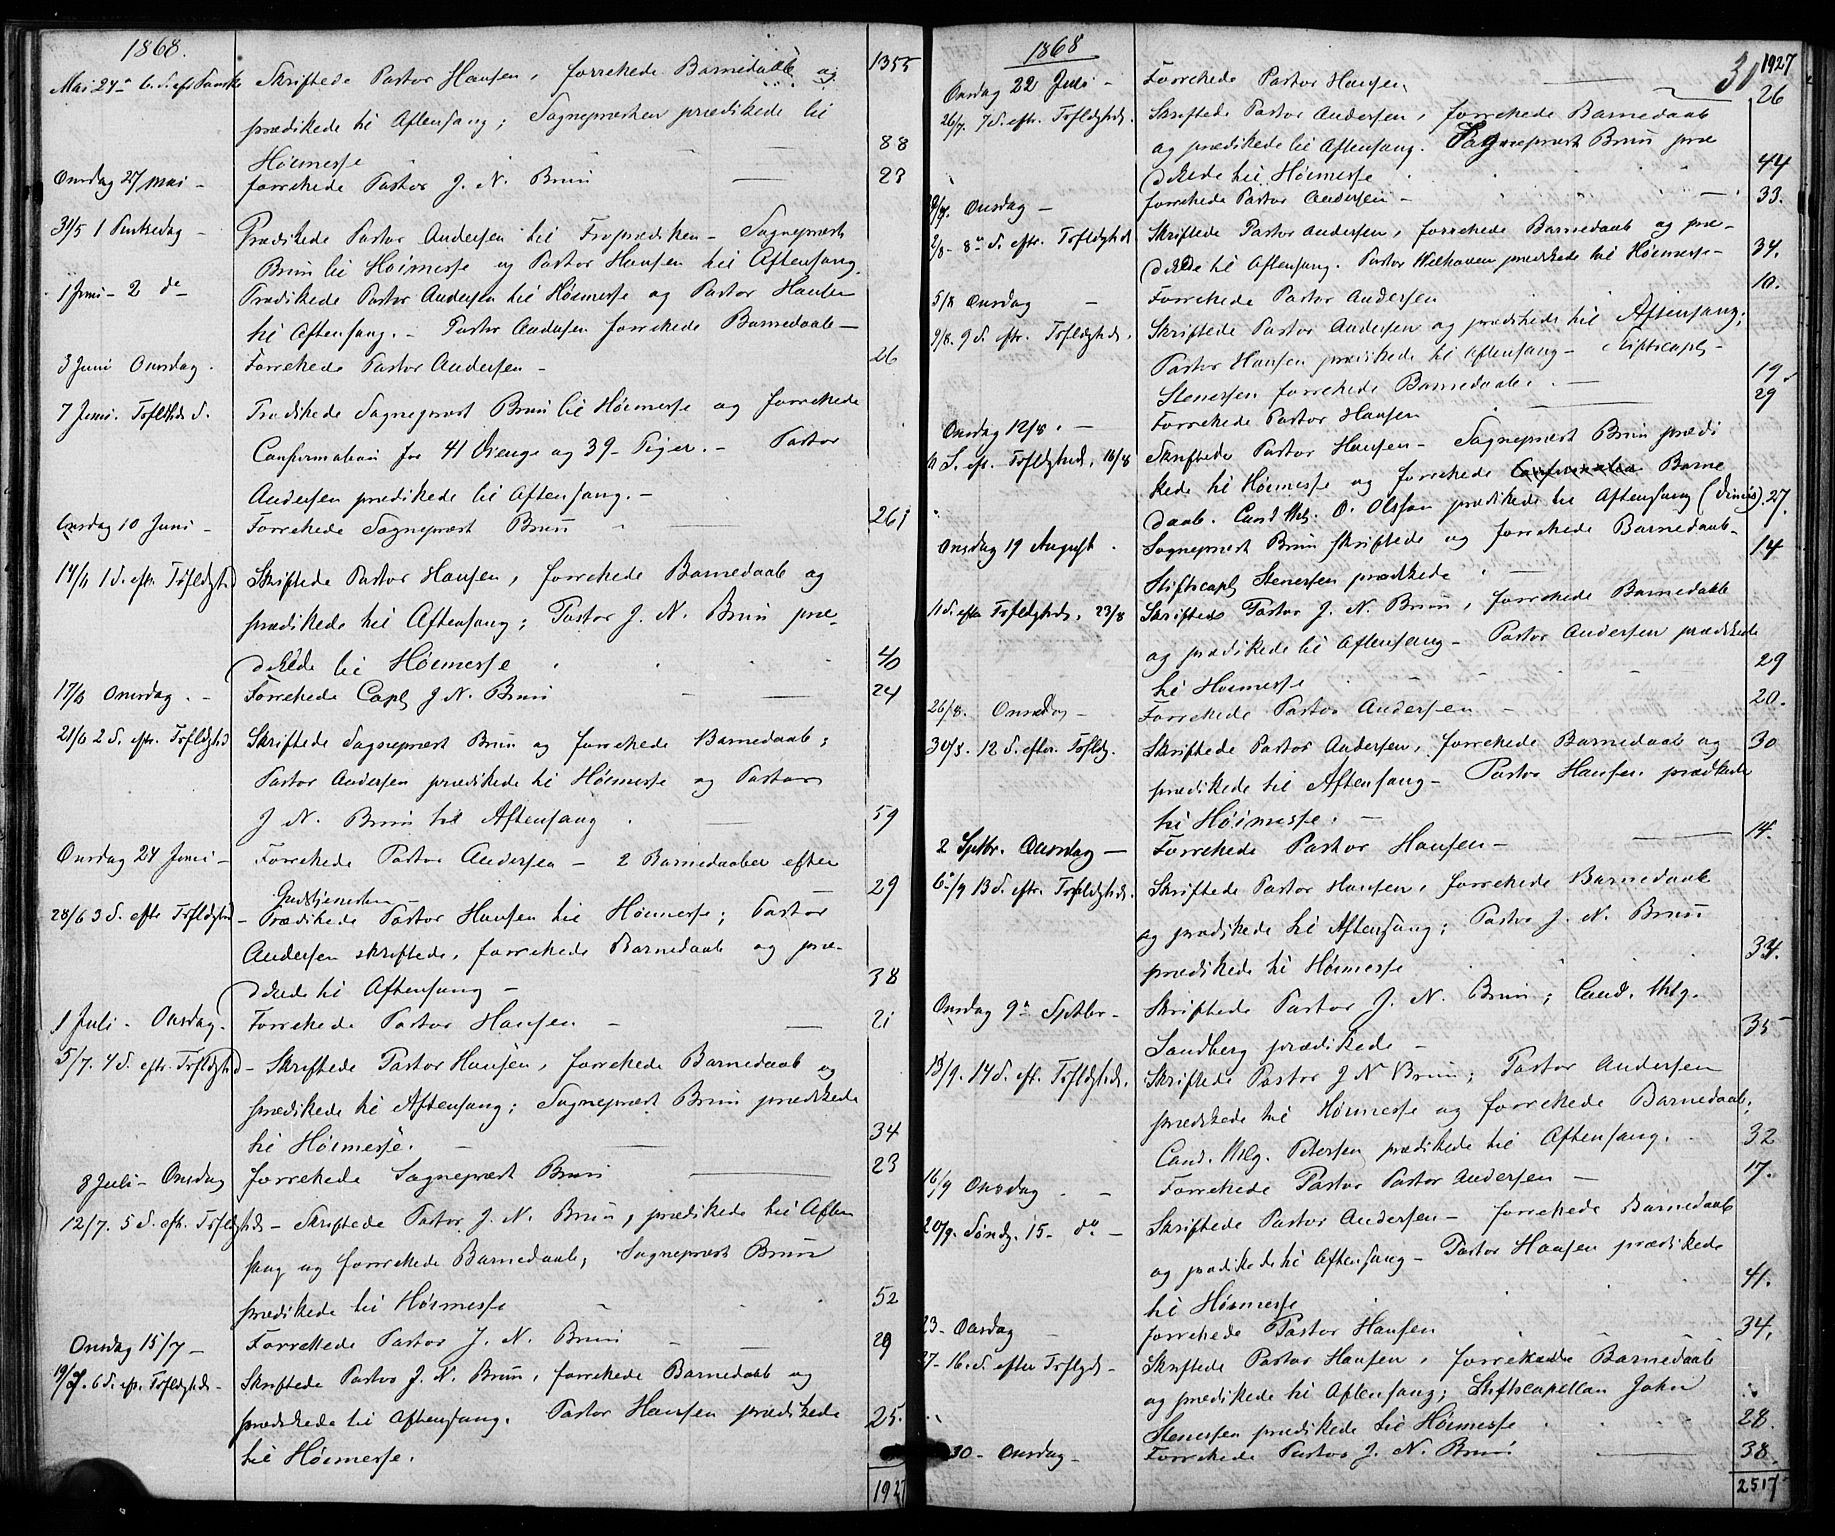 1868.
1355
Mai 24de 6. S. eft Paaske Skriftede Pastor Hansen, forrettede Barnedaab og
prædikede til Aftensang; Sognepresten prædikede til
Høimesse 88
Onsdag 27 Mai - forrettede Pastor J. N. Brun — 23
31/5 1 Pintsedag - Prædikede Pastor Andersen til Froprædiken - Sogneprest
Brun til Høimesse og Pastor Hansen til Aftensang.
1 Juni - 2 do - Prædikede Pastor Andersen til Høimesse og Pastor Hansen
til Aftensang. - Pastor Andersen forrettede Barnedaab —
3 Juni Onsdag. Forrettede Pastor Andersen - 26
7 Juni. Trflths S. Prædikede Sogneprest Brun til Høimesse og forrettede
Confirmation for 41 Drenge og 39 Piger. - Pastor
Andersen prædikede til Aftensang. -
Onsdag 10 Juni - Forrettede Sogneprest Brun — 261
14/6 1 S. eftr. Trfldghed Skriftede Pastor Hansen, forrettede Barnedaab og
prædikede til Aftensang; Pastor J. N. Brun præ-
dikede til Høimesse 40
17/6 Onsdag. - Forrettede Capl J. N. Brun - — 24
21/6 2 S. eftr. Trfldghed Skriftede Sogneprest Brun og forrettede Barnedaab;
Pastor Andersen prædikede til Høimesse og Pastor
J. N. Brun til Aftensang — 59
Onsdag 24 Juni - Forrettede Pastor Andersen - 2 Barnedaaber efter
Gudstjenesten - 29
28/6 3 S. efte Trfldghed - Prædikede Pastor Hansen til Høimesse; Pastor
Andersen skriftede, forrettede Barnedaab og præ-
dikede til Aftensang - 38
1 Juli - Onsdag. Forrettede Pastor Hansen - — 21
5/7. 4 S. eftr. Trfldghed - Skriftede Pastor Hansen, forrettede Barnedaab og
prædikede til Aftensang; Sogneprest Brun prædikede
til Høimesse. - — 34
8 Juli - Onsdag forrettede Sogneprest Brun — 23
12/7. 5 S. eftr. Trfldgheds - Skriftede Pastor J. N. Brun, prædikede til Aften
sang og forrettede Barnedaab; Sogneprest Brun
prædikede til Høimesse - 52
Onsdag 15/7 - Forrettede Pastor J. N. Brun - — 29
19/7. 6 S. eft. Trfldgheds - Skriftede Pastor J. N. Brun, forrettede Barnedaab og
prædikede til Aftensang. Pastor Hansen prædikede 25.
til Høimesse.
1927
1868
30
1927
Onsdag 22 Juli - Forrettede Pastor Hansen — 26
26/7. 7 S. eftr. Trfldgheds. Skriftede Pastor Andersen, forrettede Barnedaab
og prædikede til Aftensang. Sogneprest Brun præ
dikede til Høimesse 44
29/7. Onsdag - forrettede Pastor Andersen - 33.
2/8 - 8de S. eftr. Trfldghed Skriftede Pastor Andersen, forrettede Barnedaab og præ-
dikede til Aftensang. Pastor Welhaven prædikede til Høimesse - 34.
5/8 Onsdag - Forrettede Pastor Andersen 10.
9/8. 9 S. eftr. Trfldgheds. Skriftede Pastor Andersen og prædikede til Aftensang;
Pastor Hansen prædikede til Aftensang - Stiftscapl -
Stenersen forrettede Barnedaab. — 19
Onsdag 12/8. - Forrettede Pastor Hansen — 29
S. eft. Trfldgheds. 16/8 Skriftede Pastor Hansen - Sogneprest Brun prædi
kede til Høimesse og forrettede Confirmation Barne
daab. Cand theol. O. Olsson prædikede til Aftensang (Dimis). 27.
Onsdag 19 August. Sogneprest Brun skriftede og forrettede Barnedaab - 14
Stiftscapl Stenersen prædikede —
11 S. efter Trfldgheds. 23/8 Skriftede Pastor J. N. Brun, forrettede Barnedaab
og prædikede til Aftensang - Pastor Andersen prædikede
til Høimesse 29
26/8. Onsdag - Forrettede Pastor Andersen - 20.
30/8. 12 S. efter. Trfldg. Skriftede Pastor Andersen, forrettede Barnedaab og 30
prædikede til Aftensang - Pastor Hansen prædikede
til Høimesse. -
2 Sptbr. Onsdag - Forrettede Pastor Hansen - — 14.
6/9 13 S. eftr. Trfldgheds. Skriftede Pastor Hansen, forrettede Barnedaab
og prædikede til Aftensang; Pastor J. N. Brun
prædikede til Høimesse 34.
Onsdag 9de Sptbr - Skriftede Pastor J. N. Brun; Cand. theolg.
Sandberg prædikede - 35
13/9. 14 S. eft. Trfldgheds. Skriftede Pastor J N Brun; Pastor Andersen
prædikede til Høimesse og forrettede Barnedaab;
Cand. theolg. Petersen prædikede til Aftensang. 32
16/9 Onsdag. - Forrettede Pastor Pastor Andersen - 17.
20/9. Søndg. 15 - do. - Skriftede Pastor Andersen - forrettede Barnedaab
og prædikede til Aftensang - Pastor Hansen prædikede
til Høimesse 41.
23 - Onsdag - forrettede Pastor Hansen 34.
27 - 16. S. efter Trflgds - Skriftede Pastor Hansen, forrettede Barnedaab
og prædikede til Aftensang; Stiftscapellan John
Stenersen prædikede til Høimesse 28.
30 - Onsdag - Forrettede Pastor J. N. Brun — 38.
2517